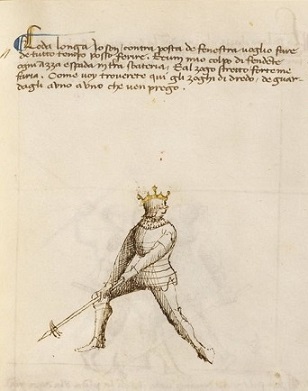 Coda longa son contra posta de fenestra voglio fare
de tutto tempo posso ferire. E cum mio colpo di fendēte
ogni azza e spada mtra sbateria. E al zogo stretto forte me
faria. Come voy trouerete qui gli zoghi di dredo, de guar-
dagli a vno a vno che uen prego.